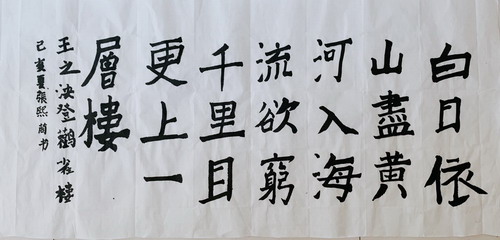 白日依
山盡黄
河入海
流欲窮
千里目
更上一
層樓
王之涣登鸛雀樓
己亥夏張熙南书